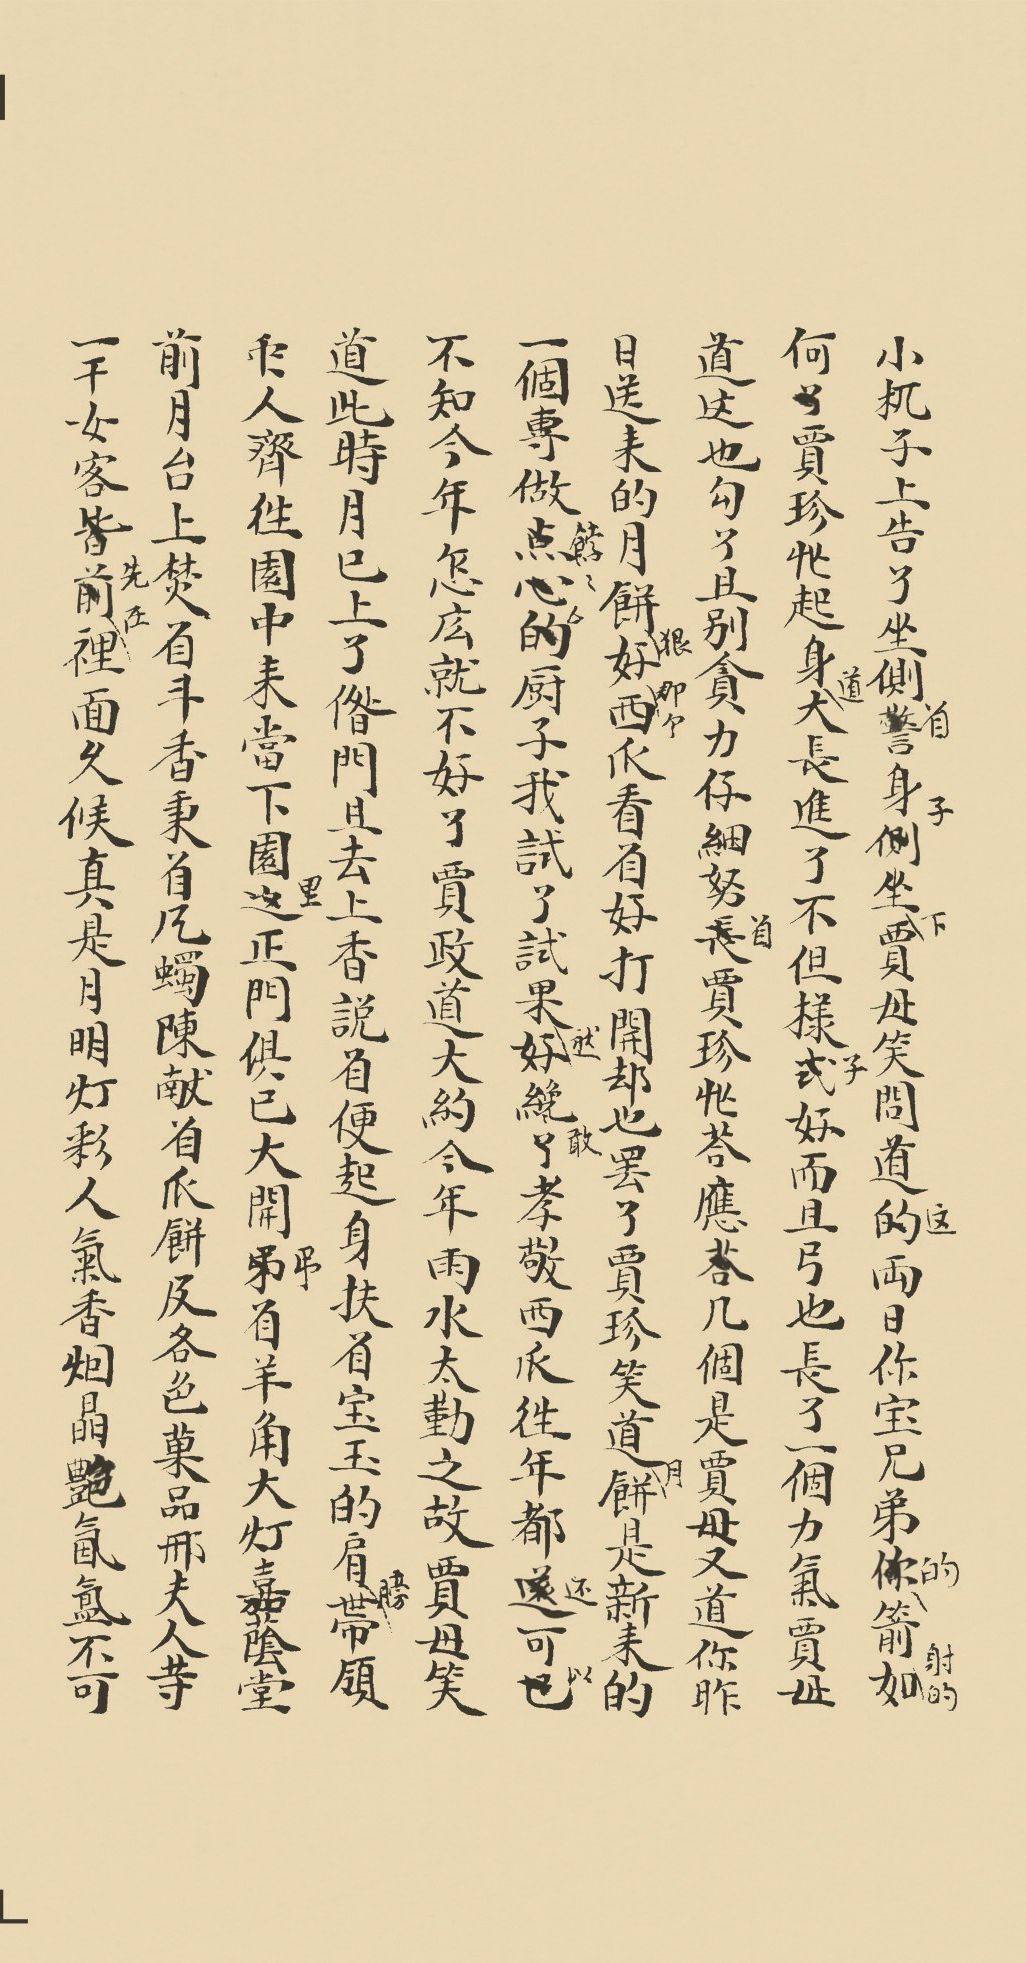 小杌子上告了坐側着警身子側坐下賈母笑問道这的兩日你宝兄弟的你箭射的如
何了賈珍忙起身道大長進了不但樣式子好而且弓也長了一個力氣賈母
道这也勾了且别貪力仔細努着長賈珍忙荅應荅几個是賈母又道你昨
日送来的月餅好狠西那个瓜看着好打開却也罢了賈珍笑道月餅是新来的
一個專做点心餑々的厨子我試了試果然好纔敢了孝敬西瓜徃年都还遂可以也
不知今年怎庅就不好了賈政道大約今年雨水太勤之故賈母笑
道此時月已上了偺們且去上香説着便起身扶着宝玉的肩膀帶領
衆人齊徃園中来當下園里这正門俱已大開吊着羊角大灯嘉蔭堂
前月台上焚着斗香秉着凡蠋陳献着瓜餅及各色菓品邢夫人等
一干女客皆先在前裡面久候真是月明灯彩人氣香烟晶艷氤氲不可